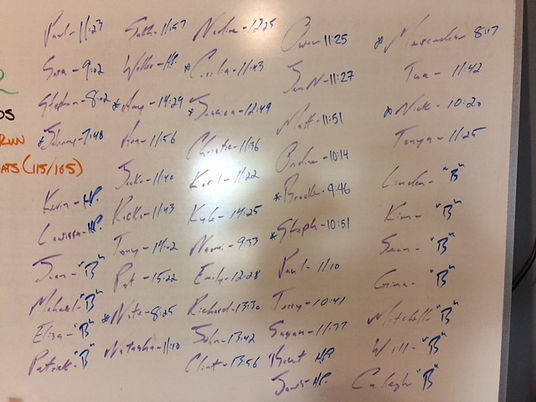 Paul - 11:27
Sara - 9:02
Stephen - 8:02
*Johnny - 7:48
Kevin - HP.
Larissa - HP.
Sven - "B"
Michael - "B"
Eliza - "B"
Patrick - "B"
11:57
HP
*Amy - 14:29
Ana - 11:56
Jake - 11:40
Ricko - 11:43
Tony - 14:02
Pat - 15:22
*Nate - 8:25
Natasha - 11:10
12:25
*Cecilia - 11:43
*Jessica - 12:49
Christie - 11:36
Karl - 11:22
Kyle - 14:25
Naomi - 9:33
Emily - 12:28
Richard - 13:30
John - 13:42
Clint - 13:56
Owen 11:25
11:27
Matt - 11:51
Andrew - 10:14
*Brooke - 9:46
*Steph - 10:51
Paul - 11:10
Terry - 10:41
Sagan - 11:37
Brent HP
HP.
*8:17
Tua - 11:42
*Nick - 10:20
Tonya - 11:25
Linden - "B"
Kim - "B"
Sean - "B"
Gina - "B"
Mitchell - "B"
Will - "B"
Caleigh "B"
RUN
(115/165)